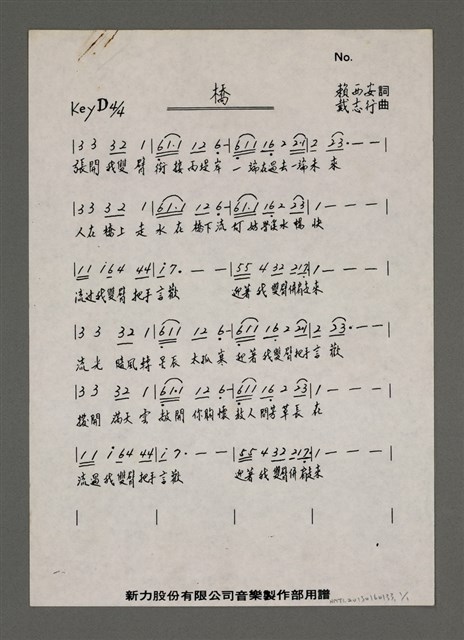 No.
橋
Key D 4/4
賴西安詞
戴志行曲
|3 3 32 1 |61·1 12 6- |611 16 2 21 |2 23·- - |
張開我雙臂 銜接兩堤岸 一端在過去一端未來
|3 3 32 1 |61·1 12 6- |611 16 2 23 |1 - - - |
人在橋上走 水在橋下流 暢快
|11 i64 44 |i7· - - |55 4 32 217 |1 - - - |
流過我雙臂把手言歡 迎著我雙臂
|3 3 32 1 |611 12 6- |611 16 2 21 |2 23·- - |
流光 星辰太孤寒 迎著我雙臂把手言歡
|3 3 32 1 |61·1 12 6- |611 16 2 23 |1 - - - |
撥開滿天雲 敞開你胸懷 人間芳草長在
|11 i64 44 |i7· - - |55 4 32 217 |1 - - - |
流過我雙臂把手言歡 迎著我雙臂
新力股份有限公司音樂製作部用譜